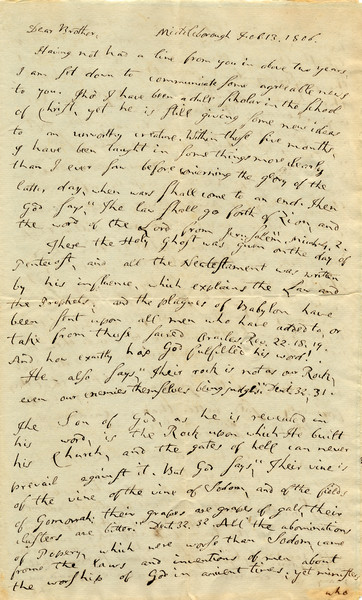 Dear Brother, Middleborough Feb 13. 1806.
Having not had a line from you in above two years
I am set down to communicate some agreeable news
to you. Tho' I have been a dull scholar in the school
of Christ, yet he is still giving some new ideas
to an unworthy creature. Within these five months
I have been taught in some things more clearly
than I ever saw before concerning the glory of the
latter day, when wars shall come to an end. Then
God says, "The law shall go forth of Zion, and
the word of the Lord from Jerusalem", Micah, 4, 2.
There the Holy Ghost was given on the day of
Pentecost, and all the New testament was written
by his influence, which explains the Law and
the Prophets; and the plagues of Babylon have
been sent upon all men who have added to, or
take from these sacred Oracles. Rev. 22. 18. 19.
And how exactly has God fulfilled his word!
He also says, "Their rock is not as our Rock,
even our enemies themselves being judges. Deut. 32, 31.
The Son of God, as he is revealed in
his word, is the Rock upon which He built
his Church, and the gates of hell can never
prevail against it. But God says, "Their vine is
of the vine of the vine of Sodom, and of the fields
of Gomorrah: their grapes are grapes of gall, their
clusters are bitter. Deut 32, 32. All the abominations
of Popery, which were worse than Sodom, came
from the laws and inventions of men about
the worship of God in ancient times; yet ministers,
who